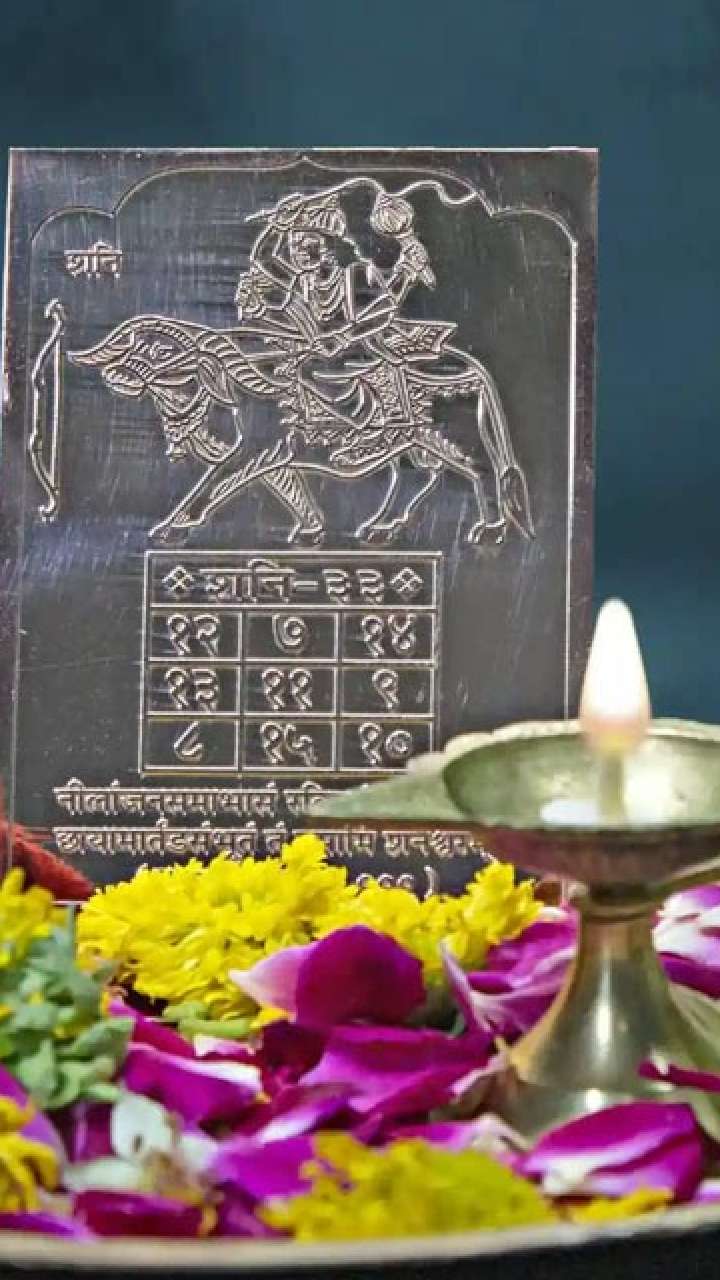 शनि
शनि-३३
१२ ७ १४
१३ ११ ९
८ १५ १०
नीलांजनसमाभासं
छायामार्तंडसंभूतं तं नमामि शनैश्चरम्